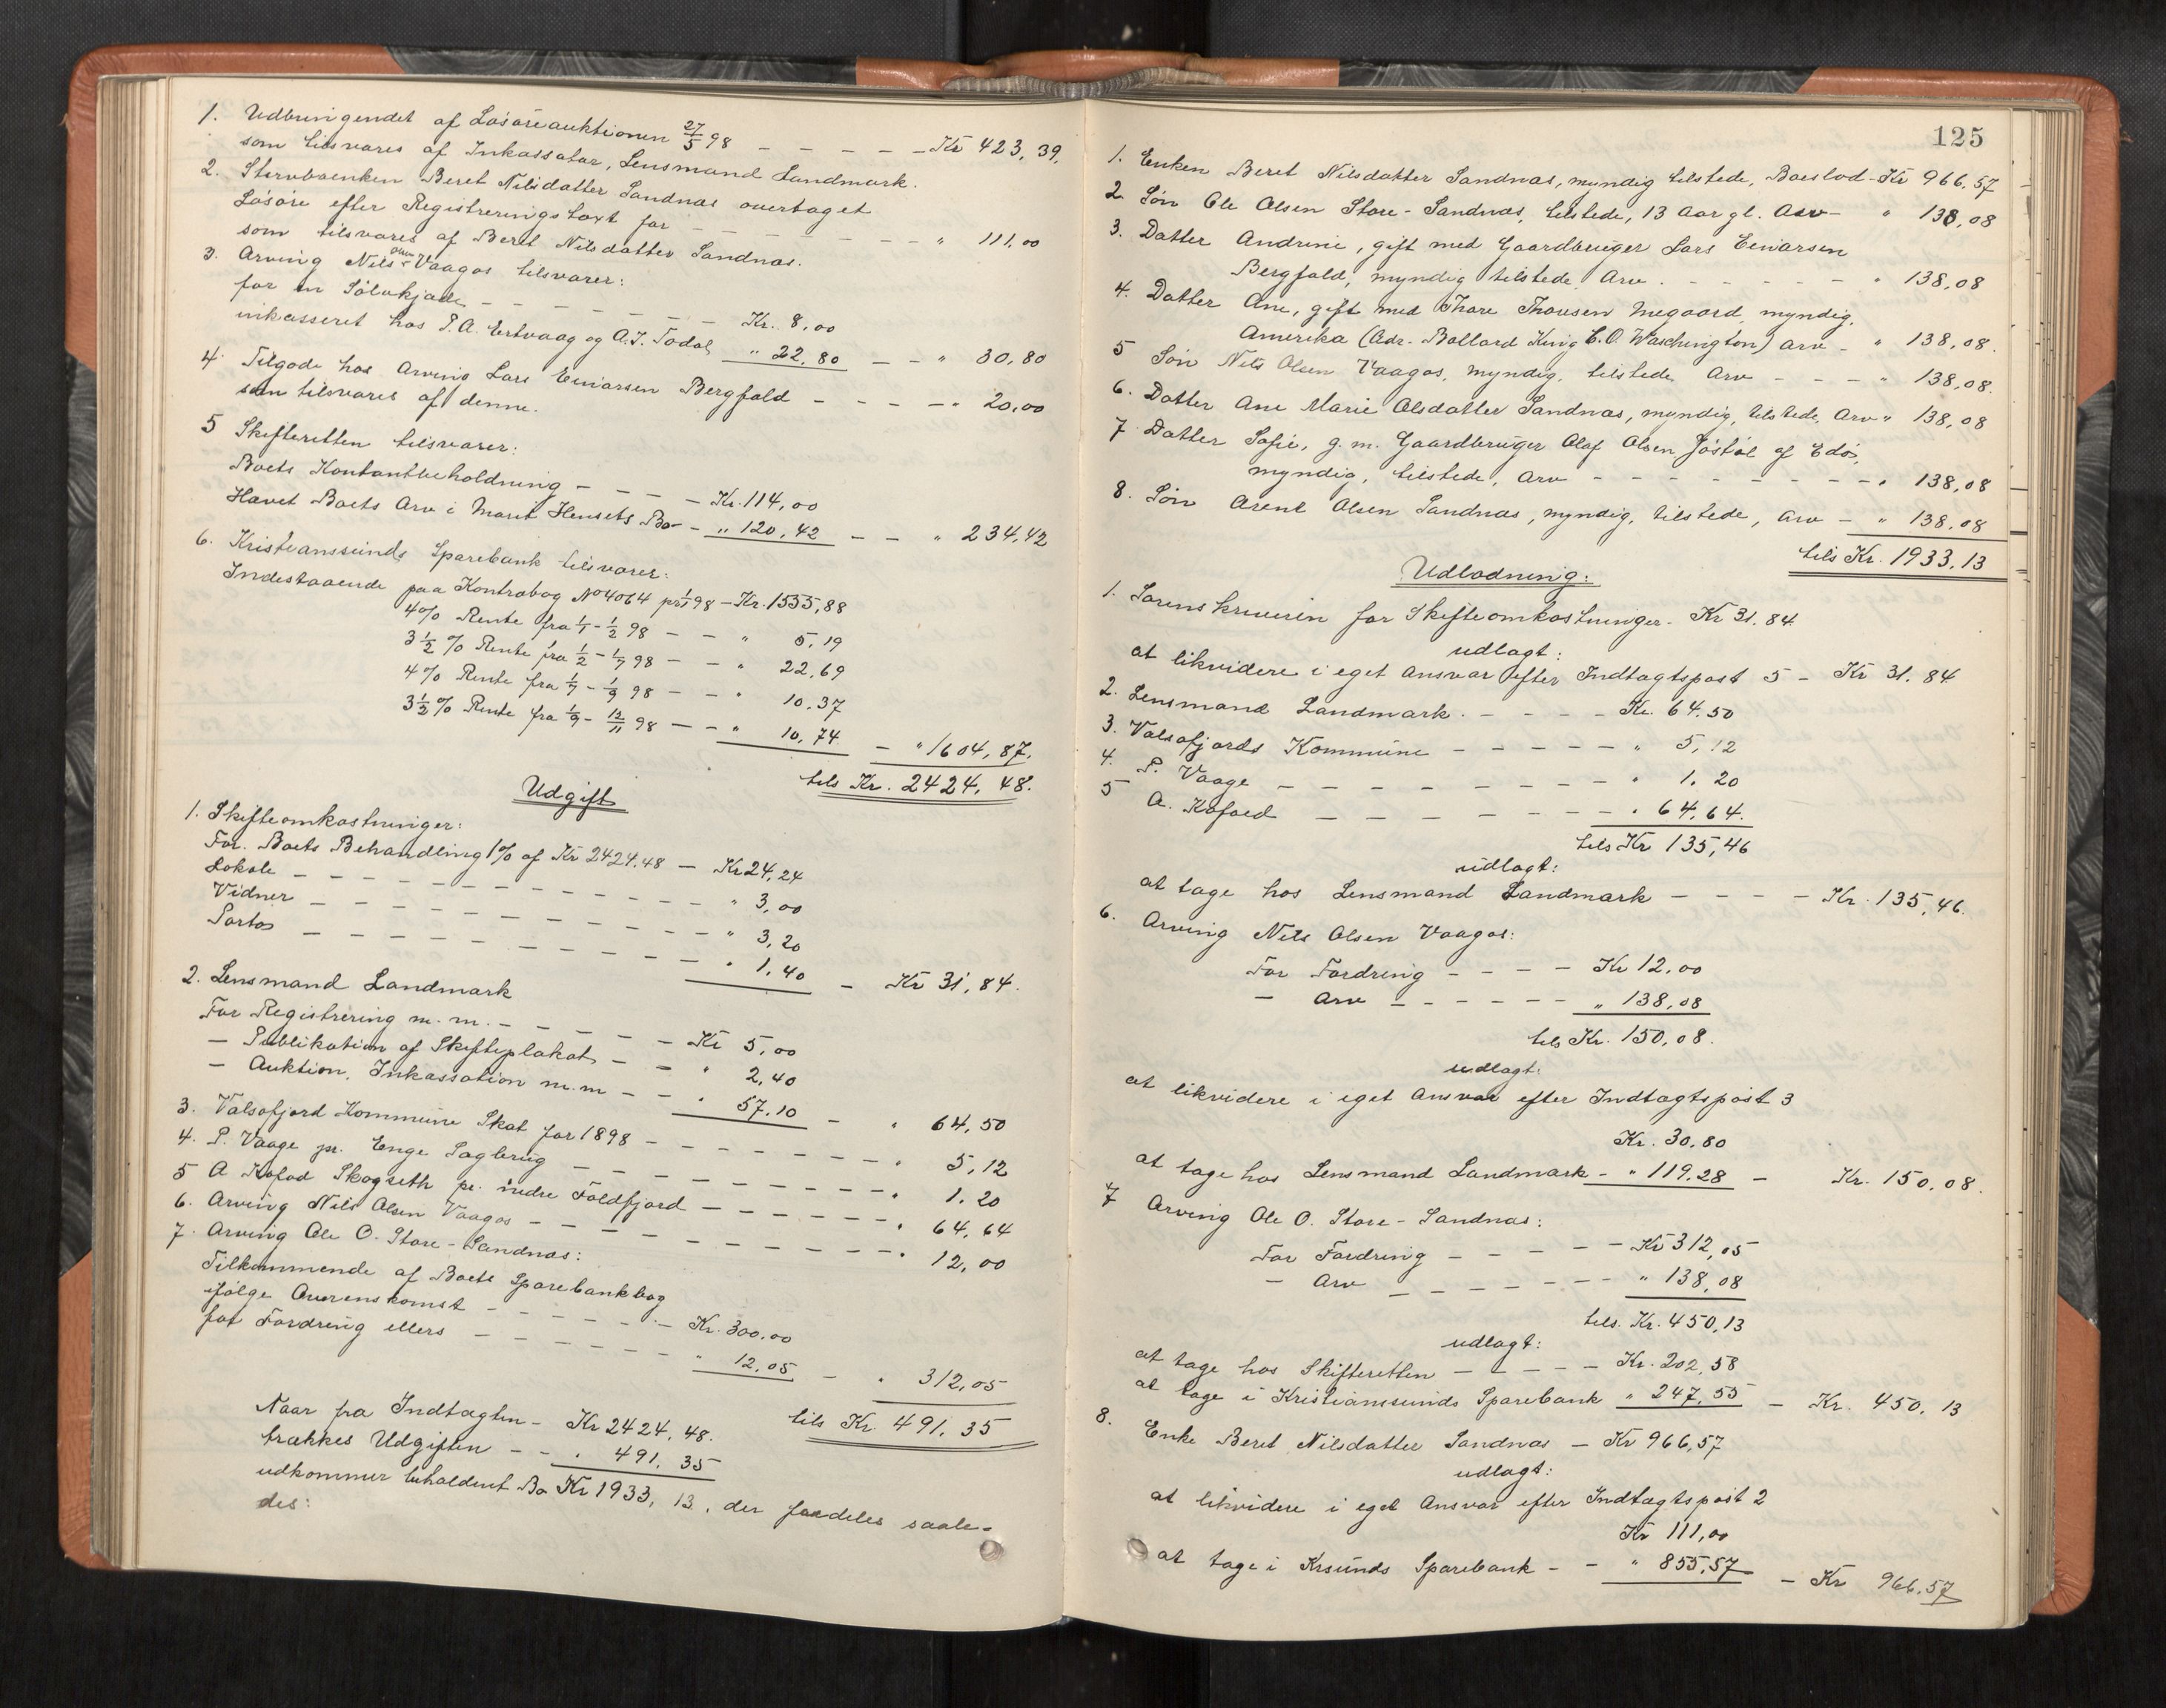 1. Udbringendet af Løsøreauktionen 27/5 98 — — — — — Kr 423,39.
som tilsvares af Inkassator, Lensmand Landmark.
2. Stervboenken Beret Nilsdatter Sandnæs overtaget
Løsøre efter Registreringstaxt for — — — — — — — " 111,00
som tilsvares af Beret Nilsdatter Sandnæs.
3. Arving Nils Olsen Vaagos tilsvarer:
for en Sølvkjæde — — — — — — Kr. 8,00
inkasseret hos P.A. Ertvaag og A.J. Todal " 22,80 — — " 30,80
4. Tilgode hos Arving Lars Einarsen Bergfald — — — — " 20,00
som tilsvares af denne.
5 Skifteretten tilsvarer:
Boets Kontantbeholdning — — — — Kr. 114,00
Hævet Boets Arv i Marit Hensets Bo — " 120,42 — — " 234,42
6. Kristianssunds Sparebank tilsvarer:
Indestaaende paa Kontrabog No 4064 pr 1/1 98 — Kr. 1555,88
4% Rente fra 1/1 - 1/2 98 — — " 5,19
3 1/2 % Rente fra 1/2 - 1/7 98 — — " 22,69
4% Rente fra 1/7 - 1/9 98 — — " 10,37
3 1/2 % Rente fra 1/9 - 12/11 98 — — " 10,74 — " 1604,87.
tils Kr. 2424,48.
Udgift
1. Skifteomkostninger:
For Boets Behandling 1% af Kr 2424,48 — Kr 24,24
Lokale — — — — — — — — — — — " 3,00
Vidner — — — — — — — — — — — " 3,20
Porto — — — — — — — — — — — " 1,40 — Kr 31,84.
2. Lensmand Landmark
For Registrering m.m. — — — — — Kr 5,00
— Publikation af Skifteplakat — — — " 2,40
— Auktion, Inkassation m.m — — " 57,10 — " 64,50
3. Valsøfjord Kommune Skat for 1898 — — — — — — — " 5,12
4. P. Vaage pr. Enge Sagbrug — — — — — — — — — " 1.20
5 A Kofod Skogseth pr. indre Foldfjord — — — — — — " 64,64
6. Arving Nils Olsen Vaagos — — — — — — — — — — " 12,00
7. Arving Ole O. Store-Sandnæs:
Tilkommende af Boets Sparebankbog
ifølge Overenskomst — — — — — — Kr. 300,00
for Fordring ellers — — — — — — " 12,05 — " 312,05
tils Kr. 491,35
Naar fra Indtægten — Kr 2424,48.
trækkes Udgiften — — " 491,35
udkommer beholdent Bo Kr 1933,13, der fordeles saale-
des:
125
1. Enken Beret Nilsdatter Sandnæs, myndig tilstede, Boeslod — Kr 966,57
2. Søn Ole Olsen Store-Sandnæs, tilstede, 13 Aar gl. Arv — " 138,08
3. Datter Andrine, gift med Gaardbruger Lars Einarsen
Bergfald, myndig tilstede Arv. — — — — — — " 138,08
4. Datter Ane, gift med Thore Thoresen Megaard, myndig,
Amerika (Adr. Ballard King C.O. Waschington) Arv — " 138,08.
5 Søn Nils Olsen Vaagos, myndig, tilstede Arv — — — " 138,08.
6. Datter Ane Marie Olsdatter Sandnæs, myndig, tilstede, Arv " 138,08
7 Datter Sofie, g.m. Gaardbruger Olaf Olsen Jøstøl af Edø,
myndig, tilstede, Arv — — — — — — — — — " 138,08
8. Søn Arent Olsen Sandnæs, myndig, tilstede, Arv — " 138,08
tils Kr. 1933,13
Udlodning:
1. Sorenskriveren for Skifteomkostninger — Kr 31,84
udlagt:
at likvidere i eget Ansvar efter Indtægtspost 5 — Kr 31.84
2. Lensmand Landmark. — — — — Kr. 64,50
3. Valsøfjords Kommune — — — — — " 5,12
4. P. Vaage — — — — — — — — " 1.20
5 A. Kofoed — — — — — — — " 64,64.
tils Kr 135,46
udlagt:
at tage hos Lensmand Landmark — — — — Kr. 135,46.
6. Arving Nils Olsen Vaagos:
For Fordring — — — — Kr 12,00
— Arv — — — — — — " 138,08
tils Kr. 150,08.
udlagt:
at likvidere i eget Ansvar efter Indtægtspost 3
Kr. 30,80
at tage hos Lensmand Landmark — " 119,28 — Kr. 150,08.
7 Arving Ole O. Store-Sandnæs:
For Fordring — — — — — Kr 312,05
— Arv — — — — — — " 138,08
tils. Kr. 450,13
udlagt:
at tage hos Skifteretten — — — — Kr. 202,58
at tage i Kristianssunds Sparebank " 247,55 — Kr. 450,13
8. Enke Beret Nilsdatter Sandnæs — Kr 966,57
udlagt:
at likvidere i eget Ansvar efter Indtægtspost 2
Kr 111,00
at tage i Krsunds Sparebank — — " 855,57 — Kr 966,57